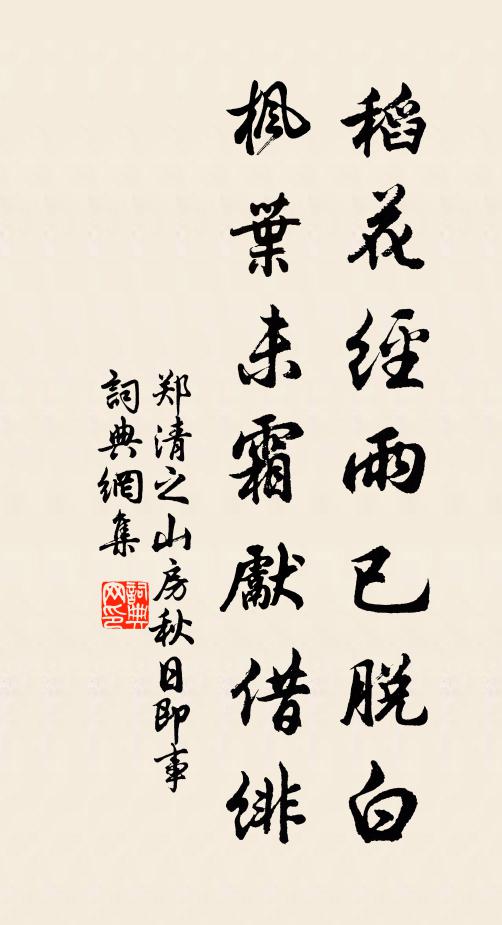 稻花經雨已脱白
楓葉未霜獻借緋
郑清之山房秋日即事
詞典網集
詞典网印